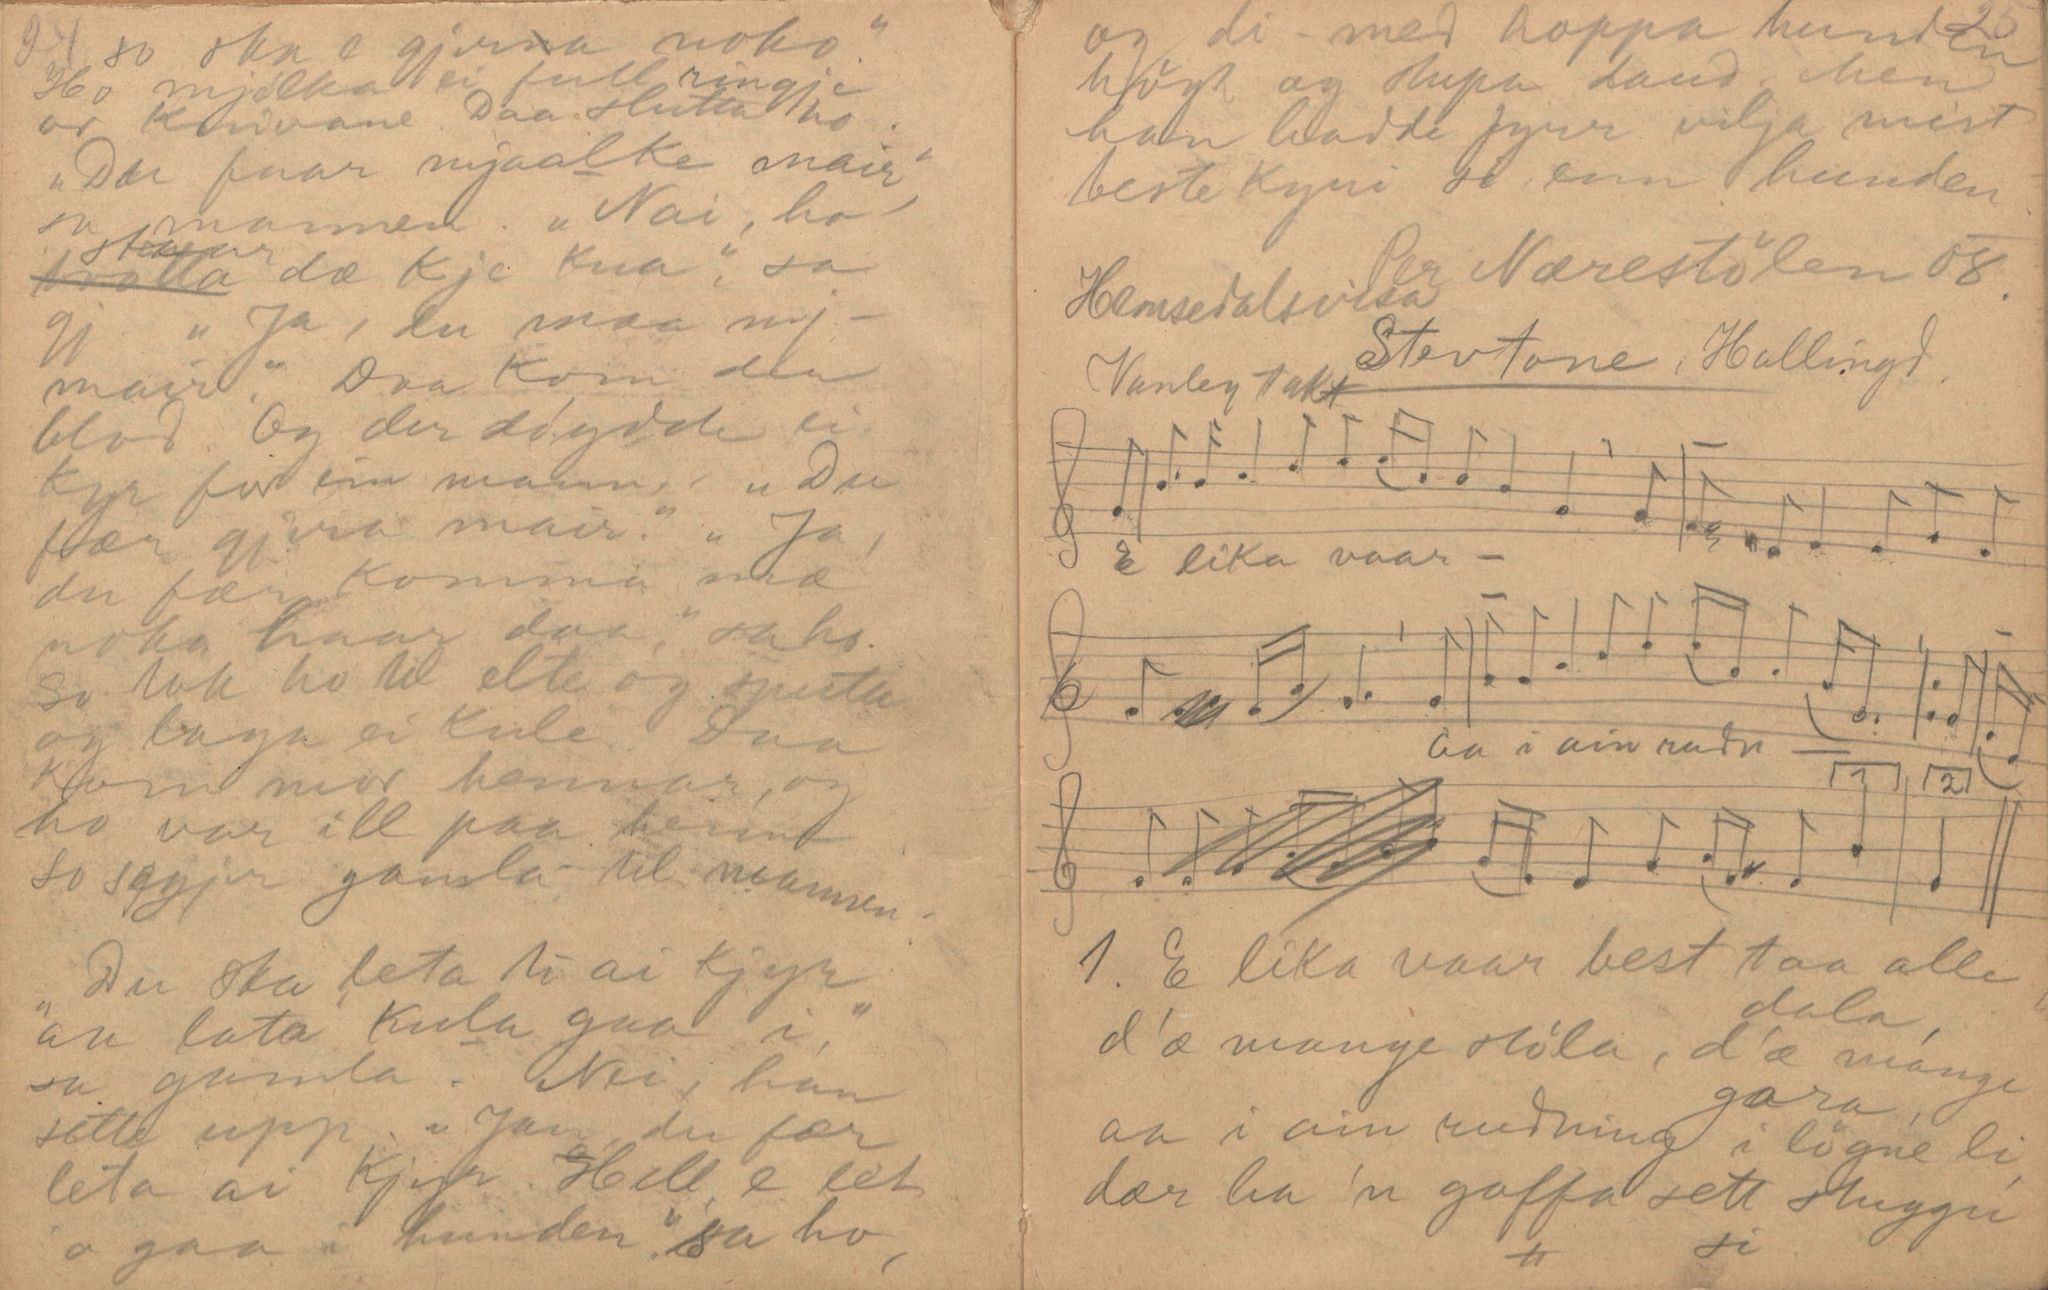 24
so ska e gjera noko"
Ho mjølka ei full ringje
or knivane. Daa slutta ho.
"Du faar mjaalke mair"
sa mannen. "Nai, ho
skaar
trotta dæ kje kua", sa
gj "Ja, du maa mj-
mair." Daa kom der
blod. Og der døydde ei
kyr for ein mann. "Du
fær gjera mair." "Ja,
du fær komma mæ
noko haar daa," sa ho.
So tok ho til elte og sputta
og laga ei kule. Daa
kom mor hennar, og
ho var ill paa henne
so segjer gamla til mannen.
"Du ska leta ti ai kjyr
an lata kula gaa i,"
sa gamla. Nei, han
sette upp. "Jau, du fær
leta ai kjyr. Hell e let
o gaa i hunden." sa ho,
25
og di med hoppa hunden
høgt og stupa daud. Men
han hadde fyrr vilja mist
beste kyri si enn hunden
Per Nærestölen 08.
Hemsedalsvisa
Stevtone, Hallingd.
Vanleg takt
E lika vaar –
aa i ain rudn —
1 2
1. E lika vaar best taa alle
dala,
d'æ mange stöla, d'æ mange
gara,
aa i ain rudning i lögne li,
dær ha 'n goffa sett stuggu
si